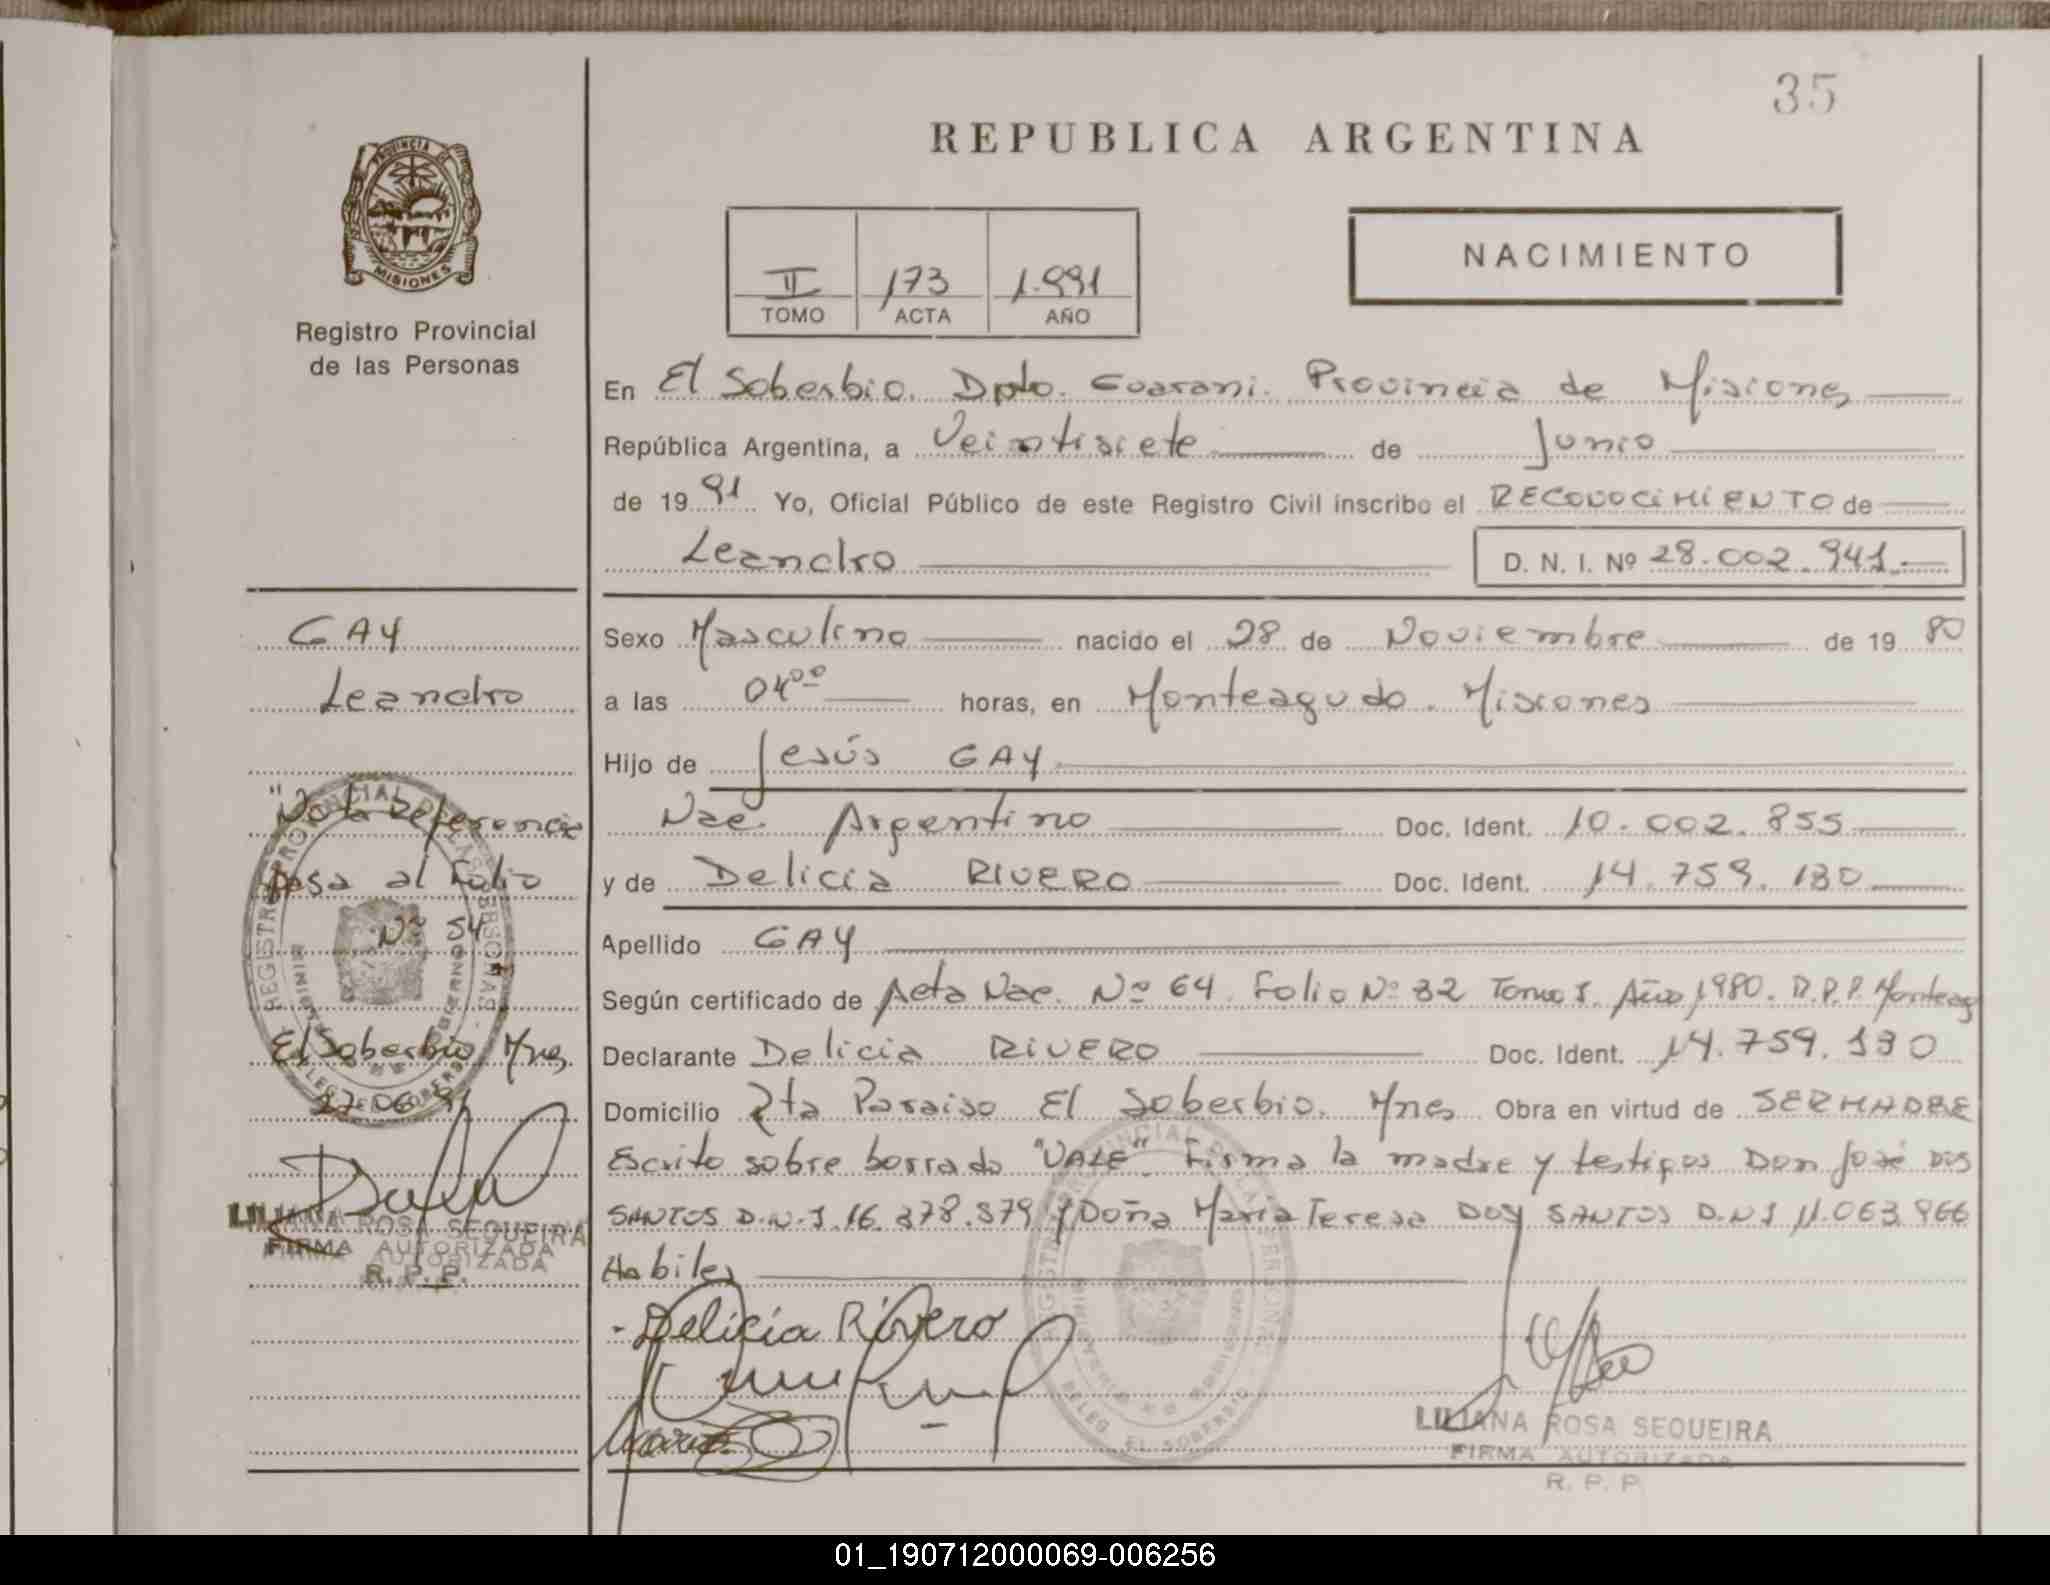 35
REPUBLICA ARGENTINA
PROVINCIA DE MISIONES
Registro Provincial
de las Personas
II 173 1.991
TOMO ACTA AÑO
NACIMIENTO
En El Soberbio. Dpto. Guaraní. Provincia de Misiones
República Argentina, a Veintisiete de Junio
de 1991 Yo, Oficial Público de este Registro Civil inscribo el RECONOCIMIENTO de
Leandro D. N. I. Nº 28.002.941.-
GAY
Leandro
"Nota Referencia
pasa al Folio
Nº 54
El Soberbio, Mnes
27 06 91
LILIANA ROSA SEQUEIRA
FIRMA AUTORIZADA
R. P. P.
Sexo Masculino nacido el 28 de Noviembre de 1980
a las 04ºº horas, en Monteagudo. Misiones
Hijo de Jesús GAY
Nac. Argentino Doc. Ident. 10.002.855
y de Delicia RIVERO Doc. Ident. 14.759.130
Apellido GAY
Según certificado de Acta Nac. Nº 64. Folio Nº 32 Tomo I. Año 1980. R.P.P. Monteag
Declarante Delicia RIVERO Doc. Ident. 14.759.130
Domicilio Zta Paraiso El Soberbio. Mnes Obra en virtud de SER MADRE
Escrito sobre borrado "VALE". Firma la madre y testigos Don José DOS
SANTOS D.N.I. 16.378.579 y Doña María Teresa DOS SANTOS D.N.I 11.063.966
Habiles
- Delicia Rivero
LILIANA ROSA SEQUEIRA
FIRMA AUTORIZADA
R. P. P.
01_190712000069-006256